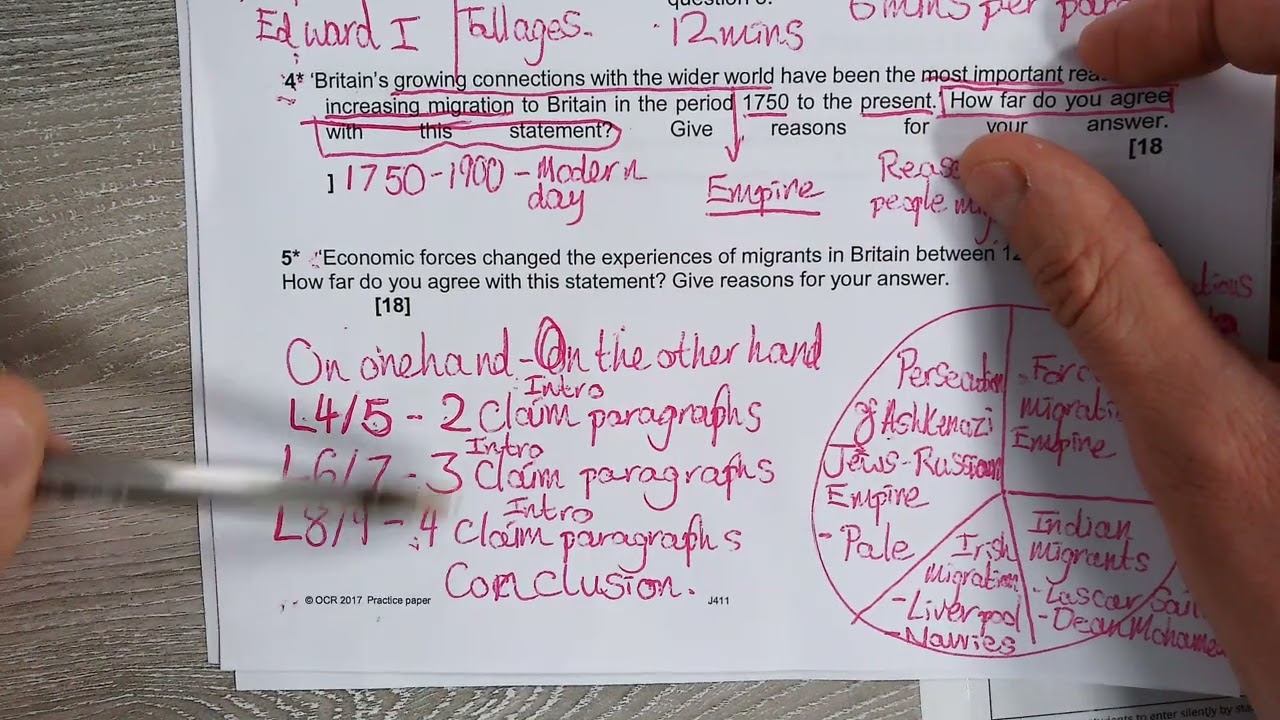 question
6 mins per para
Edward I Tallages. 12mins
4* 'Britain's growing connections with the wider world have been the most important rea
increasing migration to Britain in the period 1750 to the present. How far do you agree
with this statement? Give reasons for your answer.
[18
] 1750-1900 - Modern
day
Empire
people
5* 'Economic forces changed the experiences of migrants in Britain between 12
How far do you agree with this statement? Give reasons for your answer.
[18]
On one hand - On the other hand
Intro
L4/5 - 2 Claim paragraphs
Intro
L6/7 - 3 Claim paragraphs
Intro
L8/9 - 4 Claim paragraphs
Conclusion.
Persecution
of Ashkenazi
Jews - Russian
Empire
- Pale
Migrati
Empire
Indian
migrants
- Lascar Sail
- Dean Mahome
Irish
Migration
- Liverpool
- Navvies
© OCR 2017 Practice paper J411
to enter silently by